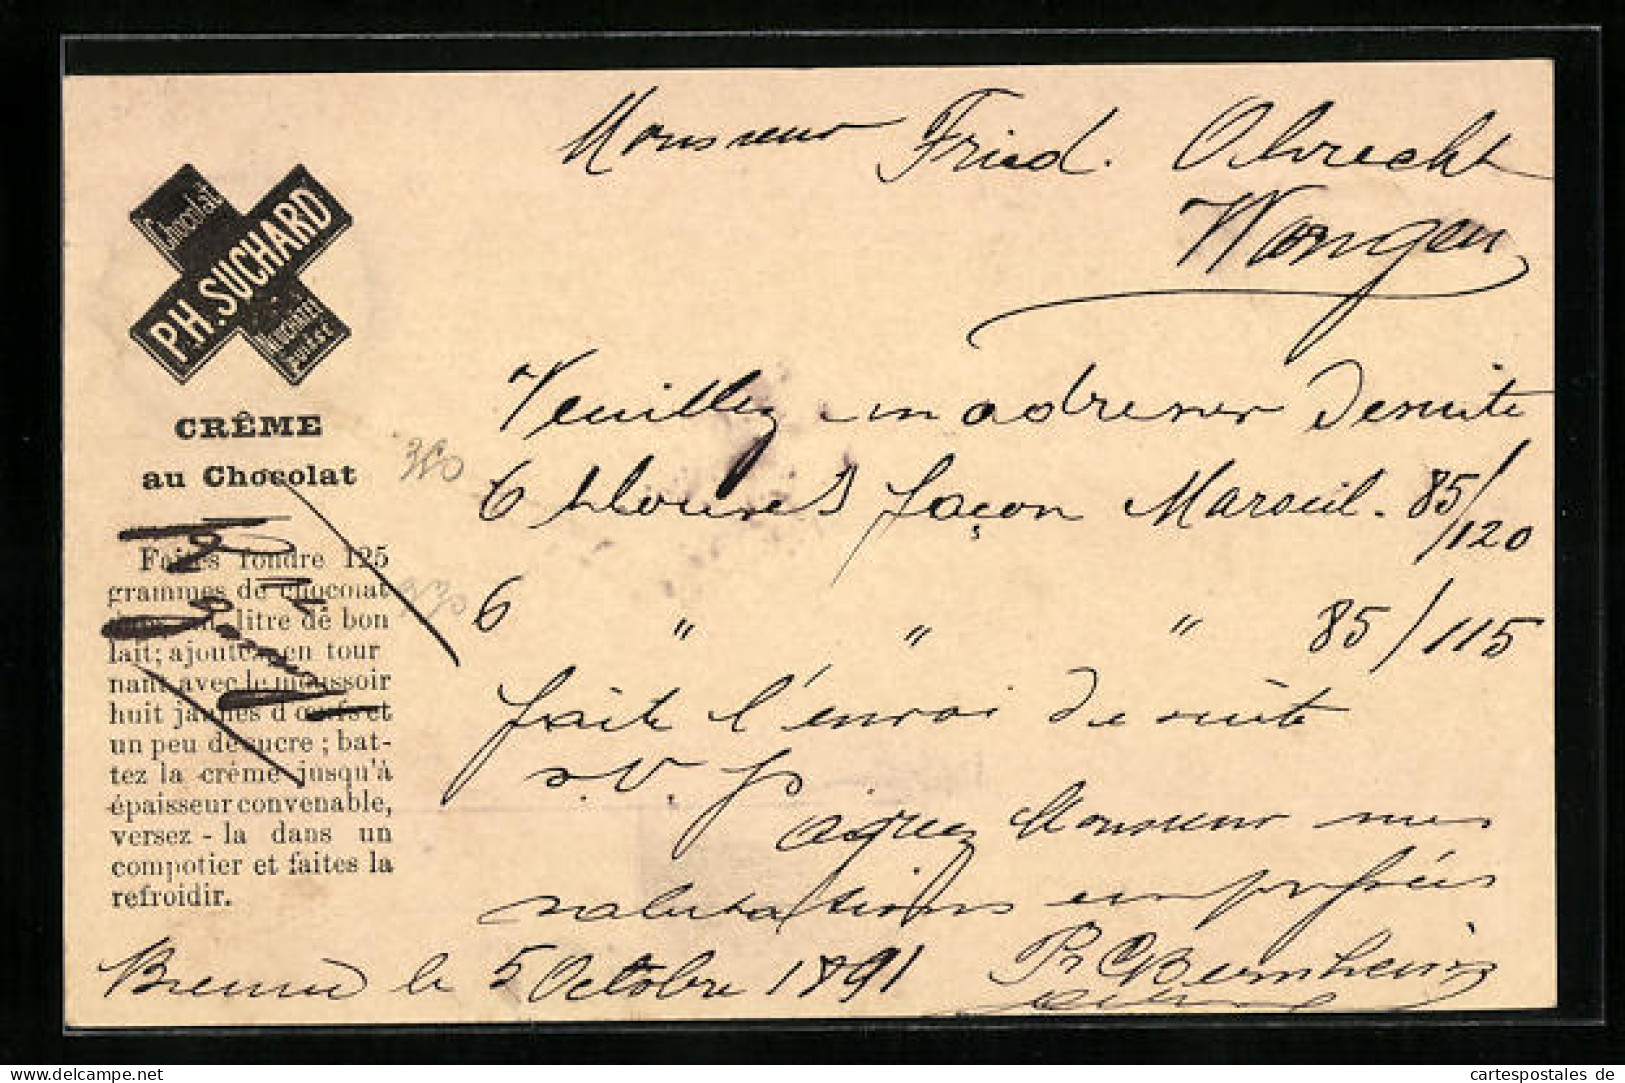 Chocolat
PH. SUCHARD
NEUCHÂTEL
SUISSE
CRÊME
au Chocolat
Faites fondre 125
grammes de chocolat
litre de bon
lait; ajoutez en tour
nant avec le moussoir
huit jaunes d'œufs et
un peu de sucre ; bat-
tez la crême jusqu'à
épaisseur convenable,
versez - la dans un
compotier et faites la
refroidir.
Monsieur Fried. Obrecht
Wangen
Veuillez m adresser desuite
6 blouses façon Maroeil. 85/120
6 " " " 85/115
faite l'envoi de suite
s. V. p
agréez Monsieur mes
salutations empressées
le 5 Octobre 1891 Bernheim
cartespostales de